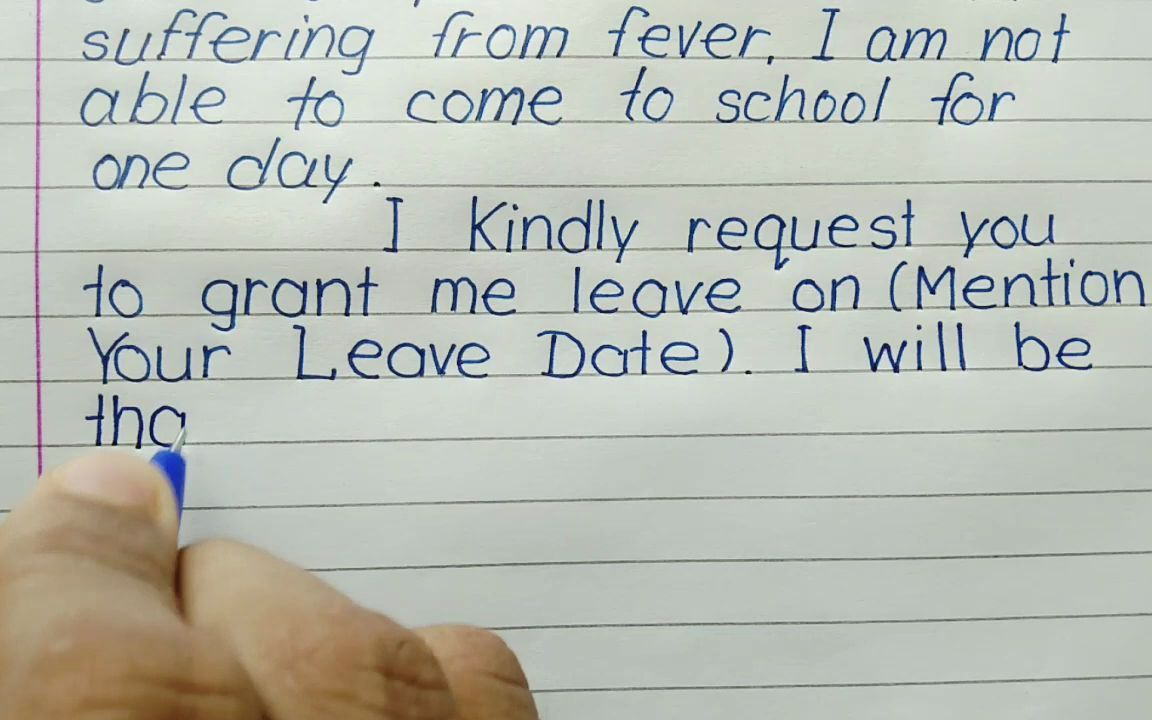 suffering from fever. I am not
able to come to school for
one day.
I Kindly request you
to grant me leave on (Mention
Your Leave Date). I will be
tha